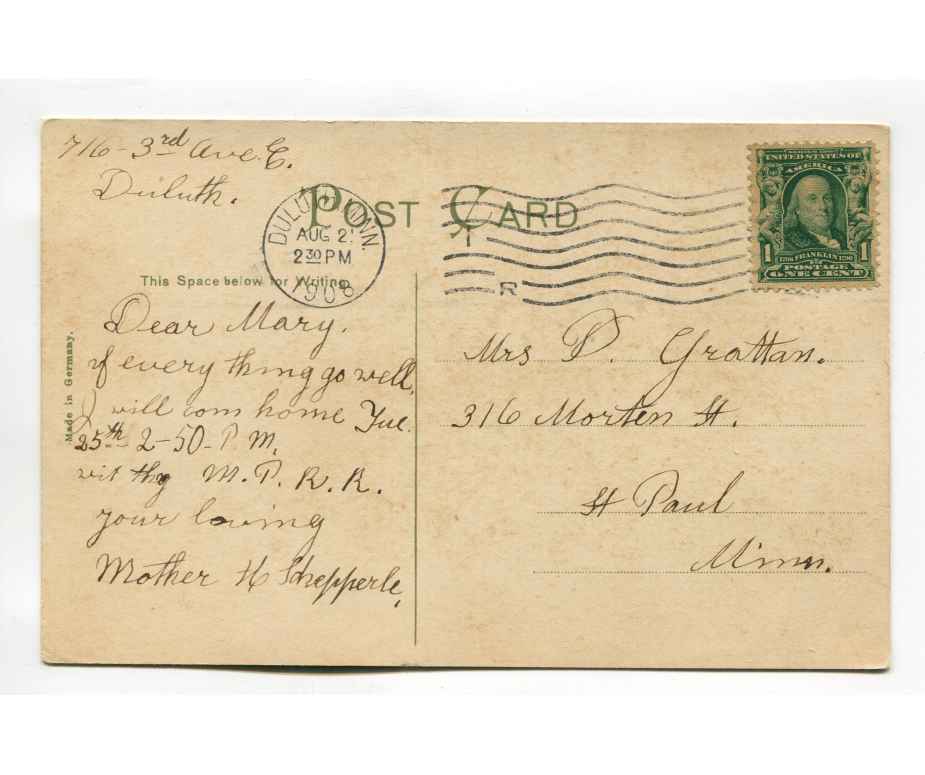 716 - 3rd Ave. E.
Duluth.
POST CARD
DULUTH, MINN.
AUG 2
2 30 PM
1908
R
UNITED STATES OF
AMERICA
1 1
1706 FRANKLIN 1790
POSTAGE
ONE CENT
This Space below for Writing
Made in Germany.
Dear Mary.
if every thing go well,
I will com home Tue.
25th 2-50-P.M.
vit thy M.P.R.R.
your loving
Mother H Shepperle,
Mrs P. Grattan.
316 Morten St.
St Paul
Minn.